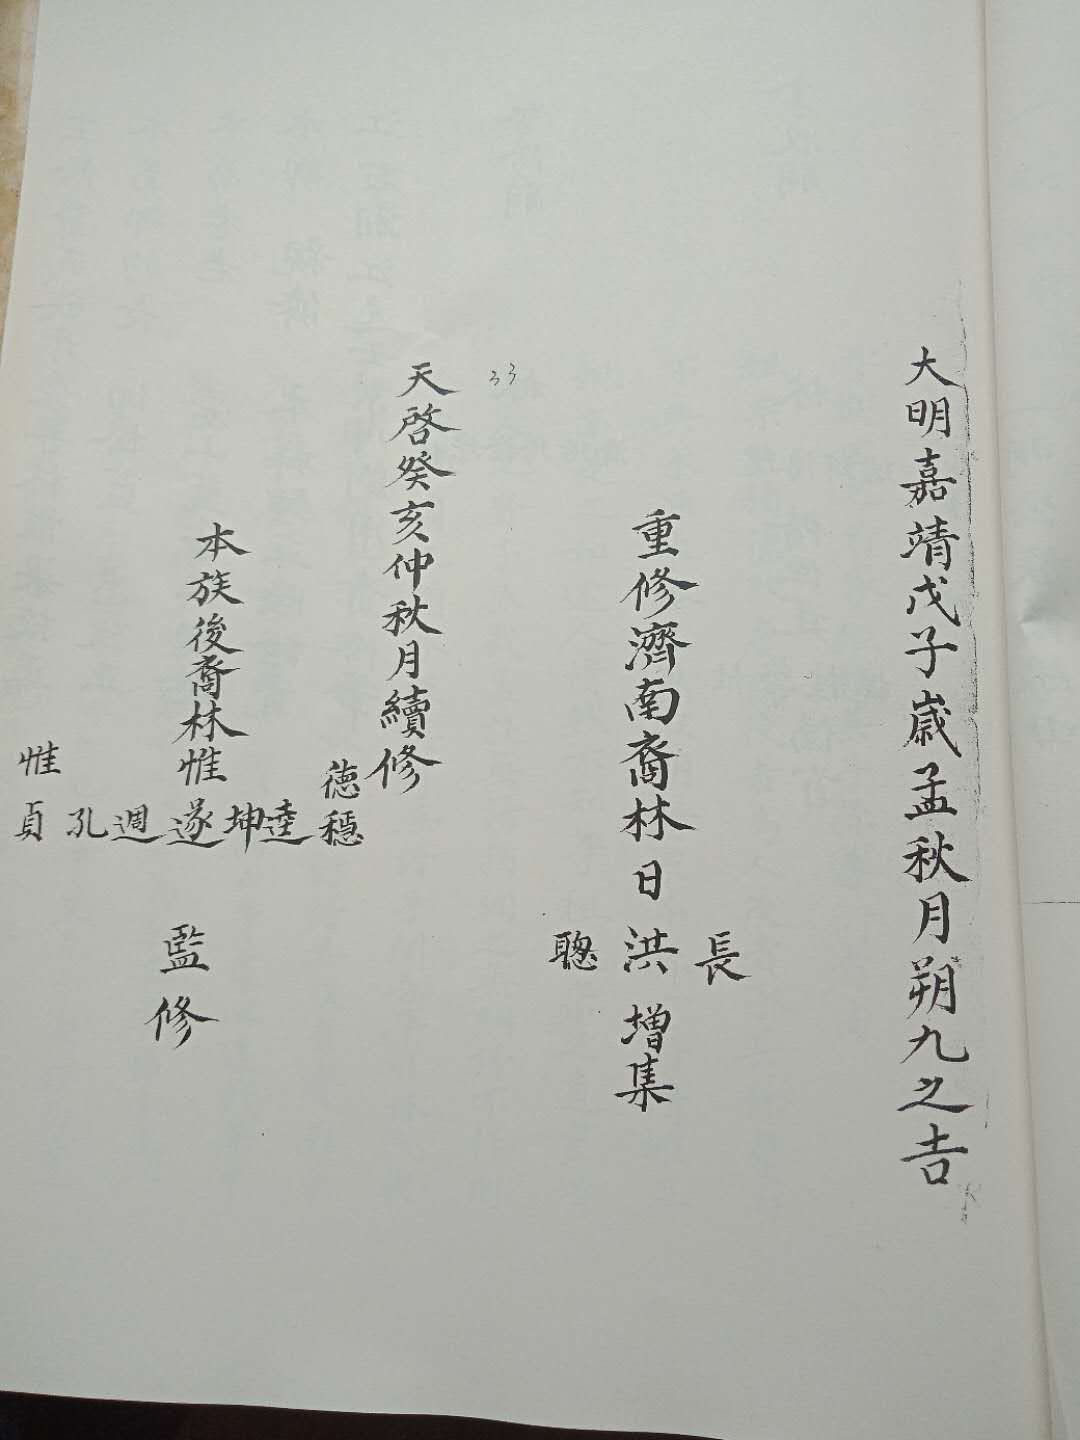 大明嘉靖戊子歳孟秋月朔九之吉
重修濟南裔林日
長
洪
聰
增集
33
天啓癸亥仲秋月續修
本族後裔林惟
德穩
達
坤
遂
週
孔
惟貞
監修